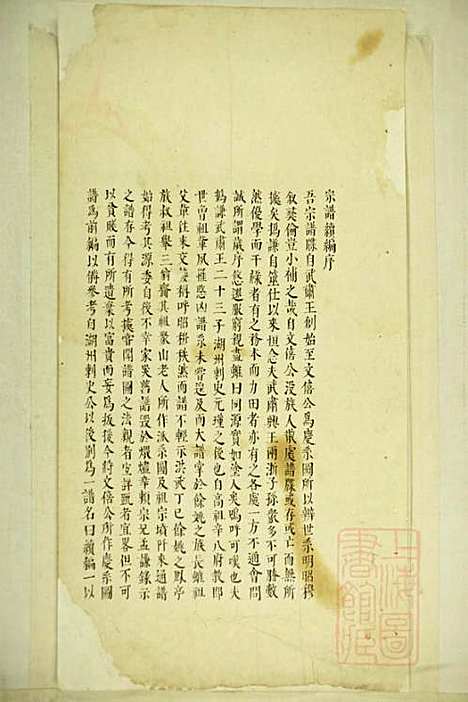 宗譜續編序
吾宗譜牒自武肅王創始至文僖公為慶系圖所以辨世系明昭穆
叙葬倫豈小補之哉自文僖公沒族人散處譜牒或存或亡而無所
據矣謙自筮仕以來恒念夫武肅王兩浙子孫眾多不可勝數
然優學而干祿者有之務本而力田者亦有之各處一方不通會問
誠所謂歲序悠遷服窮視盡雖曰同源實如塗人矣嗚呼可嘅也夫
謙武肅王二十三子湖州刺史元瓘之後也自高祖辛八府教郎
世曾祖罹愍凶譜系未嘗造及而大譜掌於餘姚之族長雖祖
父輩往來交接稱呼昭秩然而譜不輕示洪武丁巳餘姚之鳳亭
族叔祖舉三翁齋其祖山老人所作派系圖及祖宗墳阡來通譜
始得考其源委自後不幸家舊譜毀於燬爐幸賴宗兄孟謙錄示
之譜存今得有所考據嘗聞譜圖之法親者宜詳踈者宜畧但不可
以貧賤而有所遺棄以富貴而妄為扳援今將文僖公所作慶系圖
譜為前編以俻參考自湖州刺史公以後別為一譜名曰續編一以
上海圖書館藏